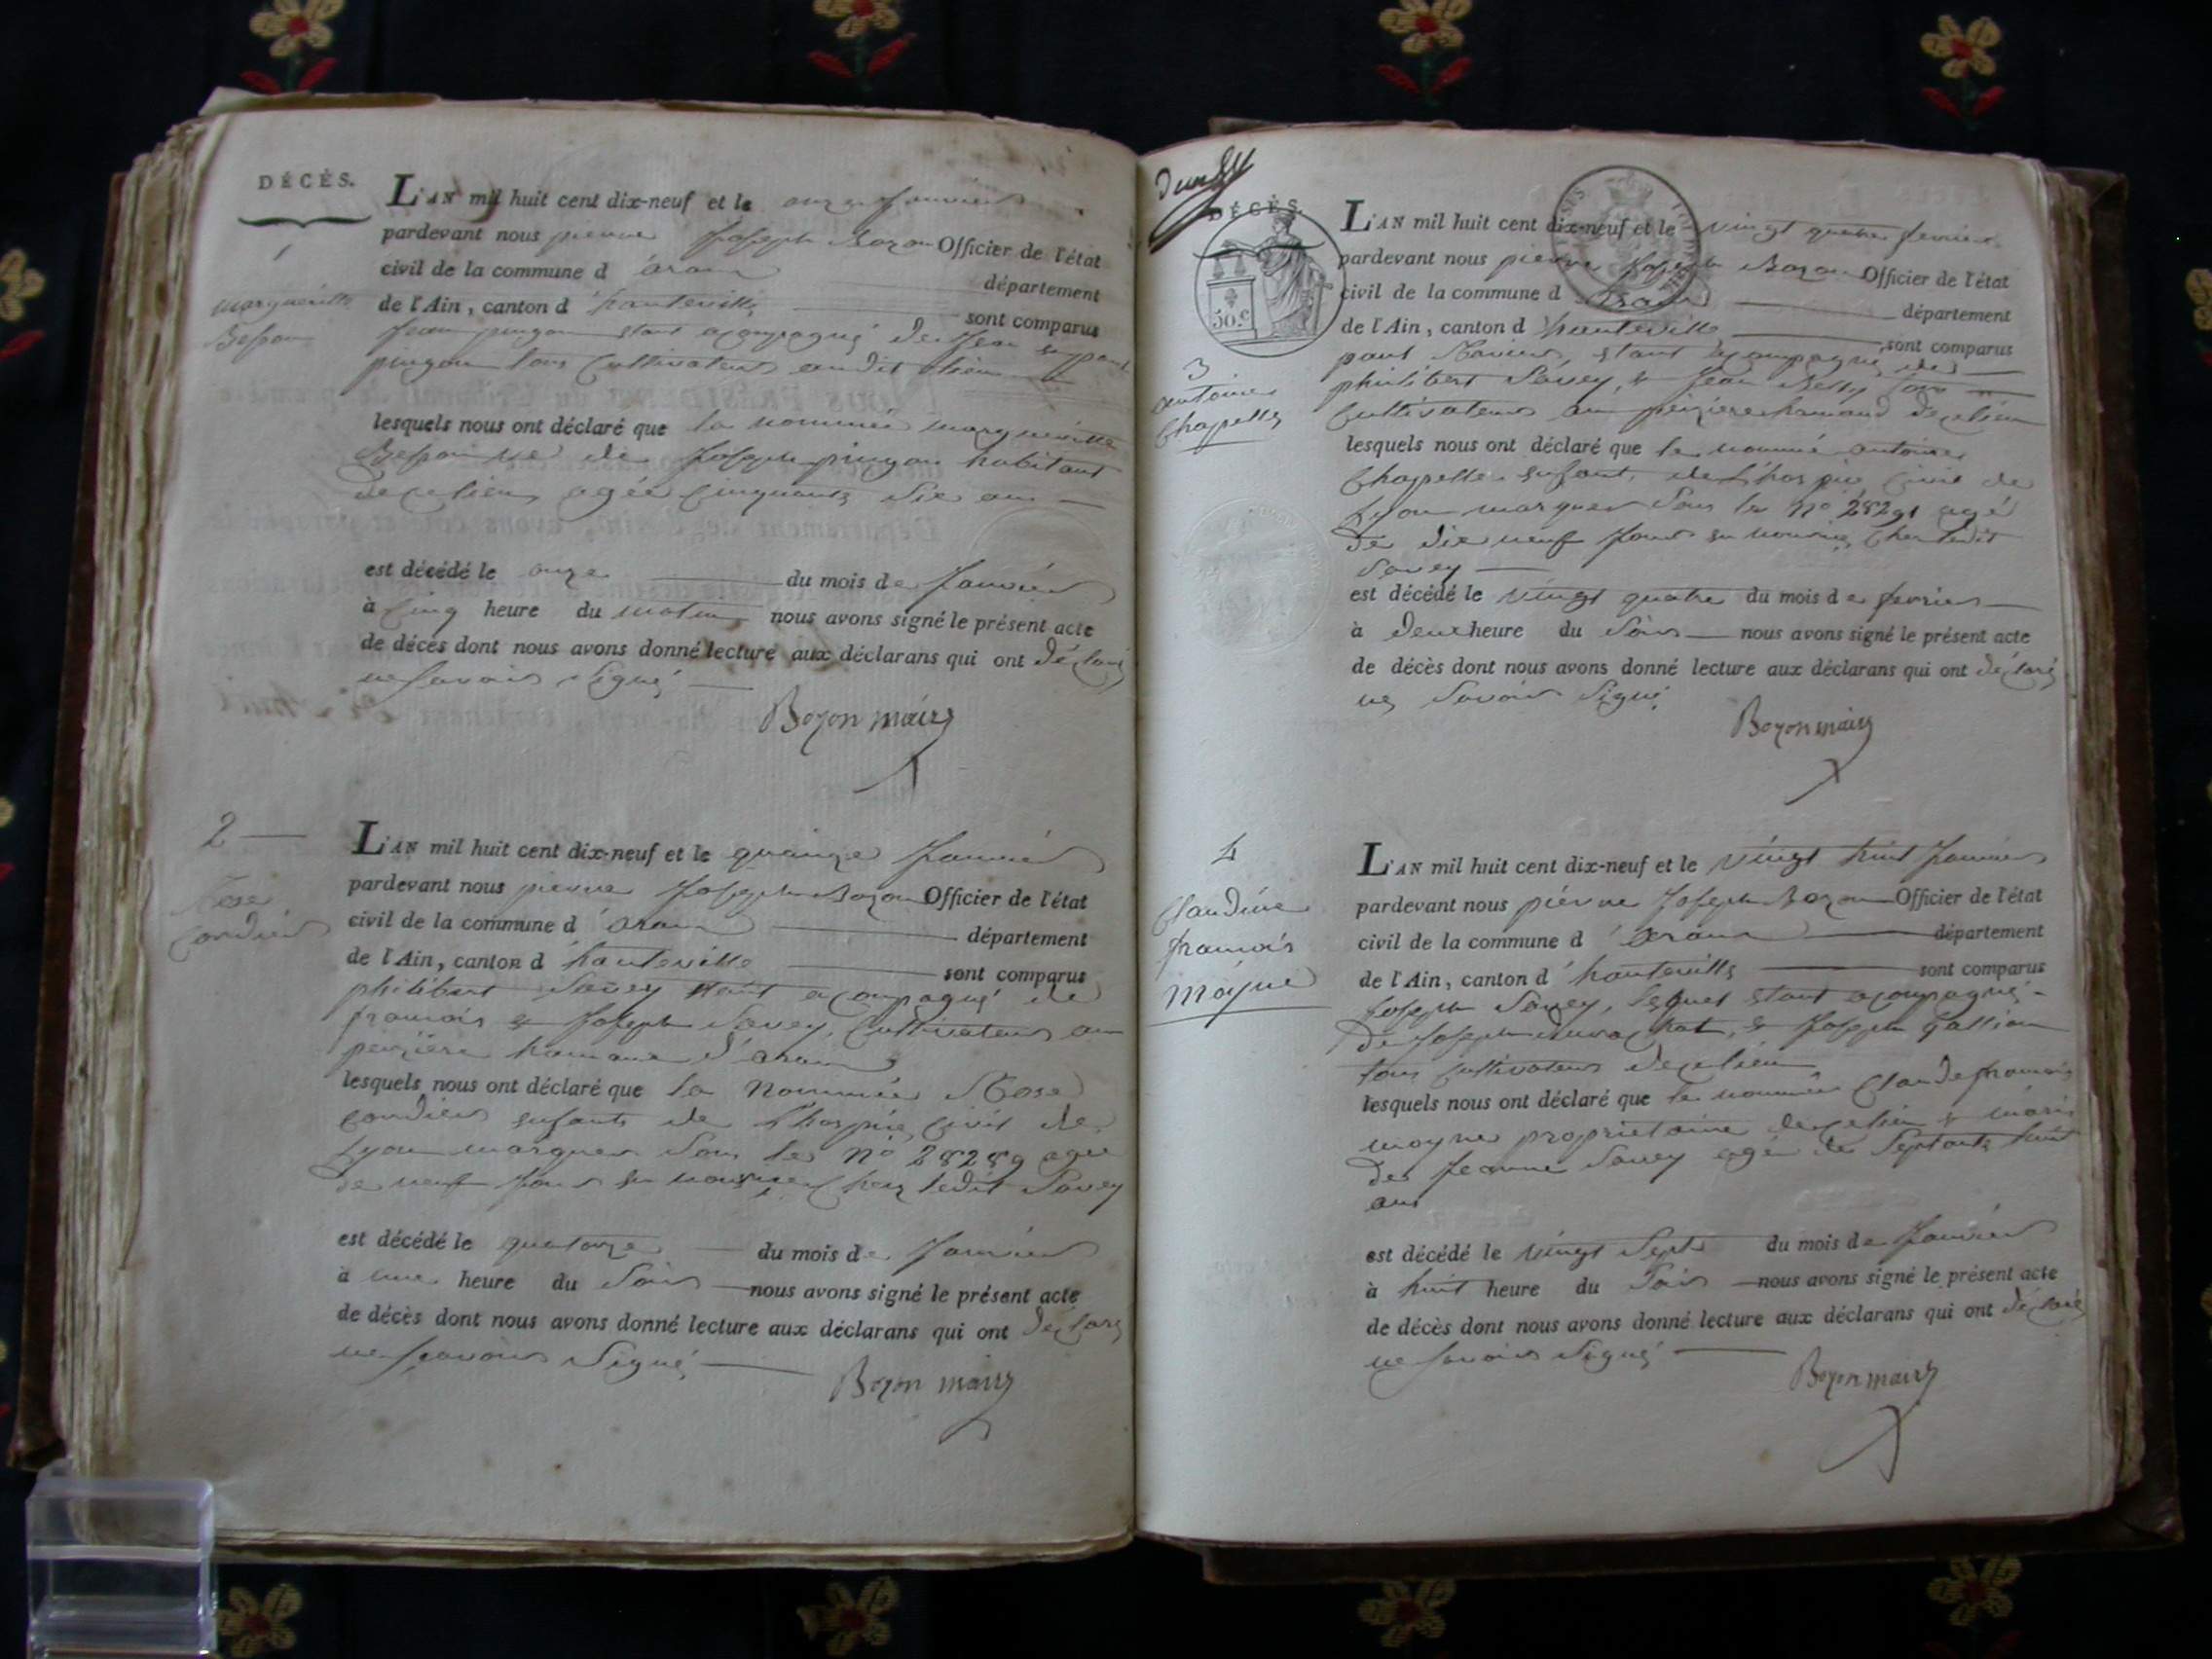 DÉCÈS.
1
margueritte
Besson
L'AN mil huit cent dix-neuf et le onze Janvier
pardevant nous pierre Joseph Bozon Officier de l'état
civil de la commune d'aran
département
de l'Ain, canton d'hauteville
sont comparus
Jean pingon etant acompagné de Jean
pingon tous Cultivateurs audit lieu
lesquels nous ont déclaré que la nommée margueritte
Besson ve de Joseph pingon habitant
de ce lieu agée Cinquante Six ans
est décédé le onze du mois de Janvier
à Cinq heure du matin nous avons signé le présent acte
de décès dont nous avons donné lecture aux déclarans qui ont déclaré
ne Savoir Signé
Bozon maire
2
Rose
Cordier
L'AN mil huit cent dix-neuf et le quainze Janvier
pardevant nous pierre Joseph Bozon Officier de l'état
civil de la commune d'aran
département
de l'Ain, canton d'hauteville
sont comparus
philibert Savey etant acompagné de
francois & Joseph Savey, Cultivateurs au
hamaux d'aran
lesquels nous ont déclaré que la Nommée Rose
Cordier enfants de l'hospice Civil de
Lyon marquer Sous le No 28289 agée
de neuf Jours en nourice Chez ledit Savey
est décédé le quatorze du mois de Janvier
à une heure du Soir nous avons signé le présent acte
de décès dont nous avons donné lecture aux déclarans qui ont déclaré
ne Savoir Signé
Bozon maire
DÉCÈS.
50.c
3
antoine
Chapelle
L'AN mil huit cent dix-neuf et le vingt quatre fevrier
pardevant nous pierre Joseph Bozon Officier de l'état
civil de la commune d'aran
département
de l'Ain, canton d'hauteville
sont comparus
etant acompagné de
philibert Savey, & Jean tous
Cultivateurs au hamaud de ce lieu
lesquels nous ont déclaré que le nommé antoine
Chapelle enfant, de l'hospice Civil de
Lyon marquer Sous le No 28291 agé
de dix neuf Jours en nourice Chez ledit
Savey
est décédé le vingt quatre du mois de fevrier
à deux heure du Soir nous avons signé le présent acte
de décès dont nous avons donné lecture aux déclarans qui ont déclaré
ne Savoir Signé
Bozon maire
4
Claudine
francois
Moyne
L'AN mil huit cent dix-neuf et le vingt huit Janvier
pardevant nous pierre Joseph Bozon Officier de l'état
civil de la commune d'aran
département
de l'Ain, canton d'hauteville
sont comparus
Joseph Savey, lequel etant acompagné
de Joseph & Joseph gallion
tous Cultivateurs de ce lieu
lesquels nous ont déclaré que le nommé Claude francois
moyne proprietaire de ce lieu & mari
de Jeanne Savey agé de Septante huit
ans
est décédé le vingt Sept du mois de Janvier
à huit heure du Soir nous avons signé le présent acte
de décès dont nous avons donné lecture aux déclarans qui ont déclaré
ne Savoir Signé
Bozon maire